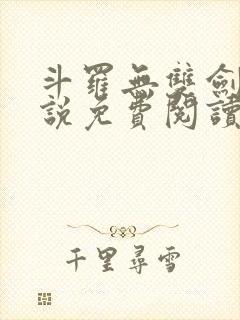 斗羅無雙劍
說免費閱讀
千里尋雪